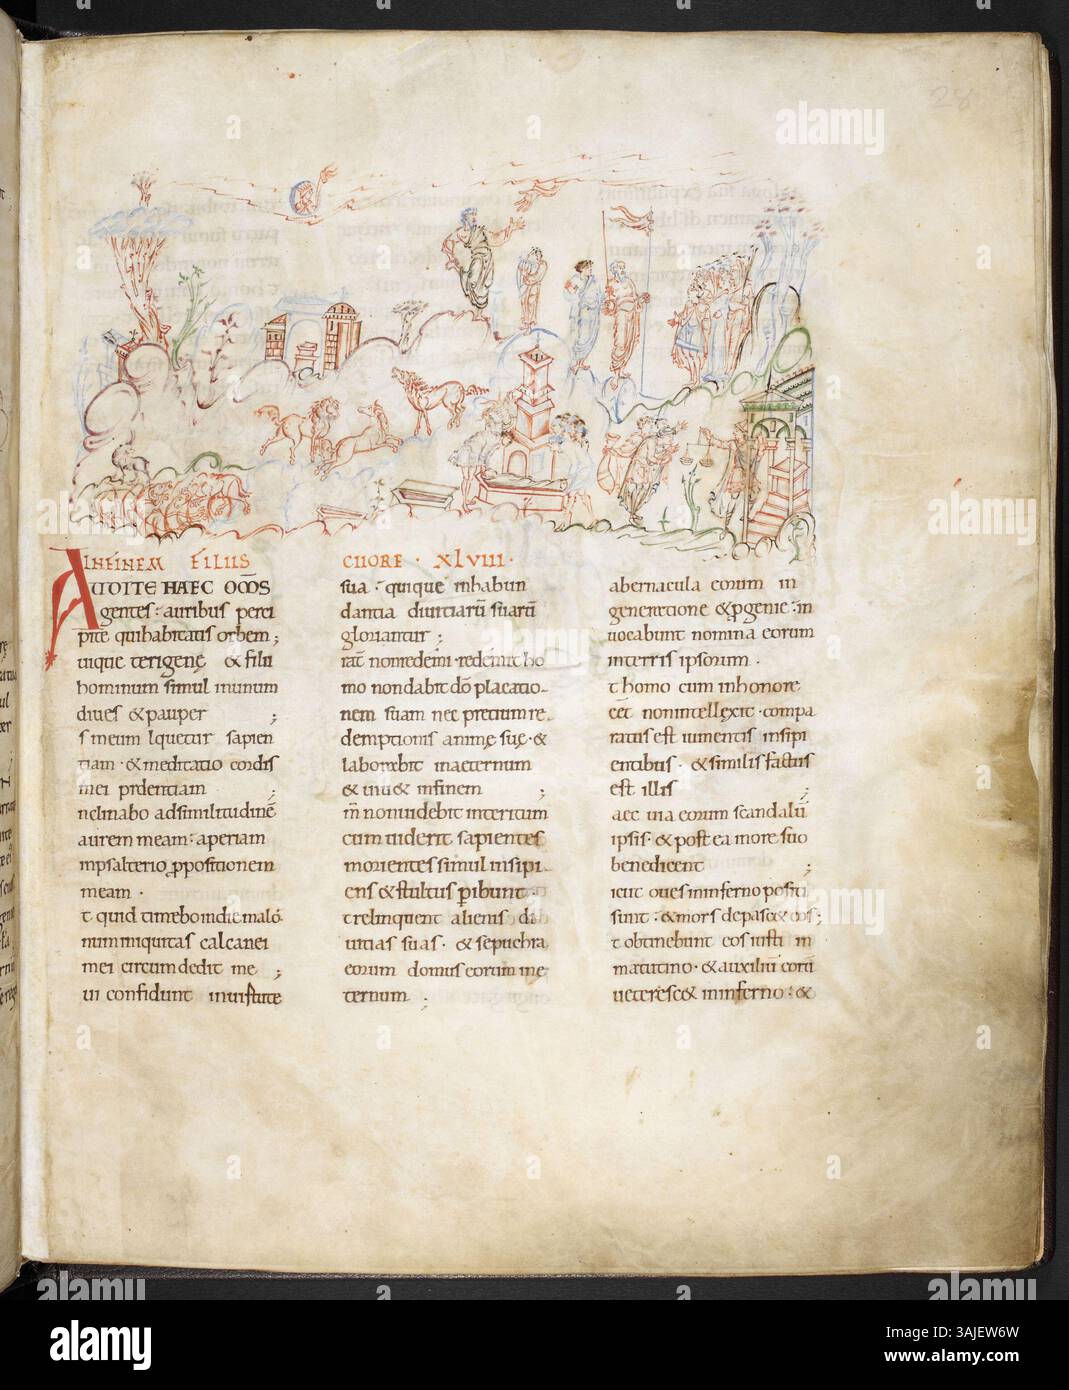 28
IN FINEM FILIIS CHORE · XLVIII ·
AUDITE HAEC OM̄S
gentes : auribus perci
pite qui habitatis orbem ;
uique terigenę & filii
hominum simul inunum
diues & pauper ;
s meum lquetur sapien
tiam · & meditatio cordis
mei prdentiam ;
nclinabo adsimilitudinē
aurem meam : aperiam
inpsalterio ppositionem
meam ·
t quid timebo indie malō
num iniquitas calcanei
mei circum dedit me ;
ui confidunt inuirtute
sua : quique inhabun
dantia diuitiarū suarū
gloriantur ;
rat̄ nonredemi · redemit ho
mo non dabit dō placatio-
nem suam nec precium re-
demptionis animę suę · &
laborabit inaeternum
& uiu& infinem ;
m̄ nonuidebit interitum
cum uiderit sapientes
morientes simul insipi
ens & stultus pibunt ·
t relinquent alienis di
uitias suas · & sepulchra
eorum domus eorum inę
ternum ;
abernacula eorum in
generatione & pgenie : in
uocabunt nomina eorum
interris ipsorum ·
t homo cum inhonore
cēt nonintellęxit · compa
ratus est iumentis insipi
entibus · & similis factus
est illis ;
aec uia eorum scandalū
ipsis · & post ea more suo
benedicent ;
icut oues ininferno positi
sunt : & mors depasc& eos ;
t obtinebunt eos iusti in
matutino · & auxiliū eorū
ueteresc& ininferno : &
alamy
a
alamy
3AJEW6W
www.alamy.com